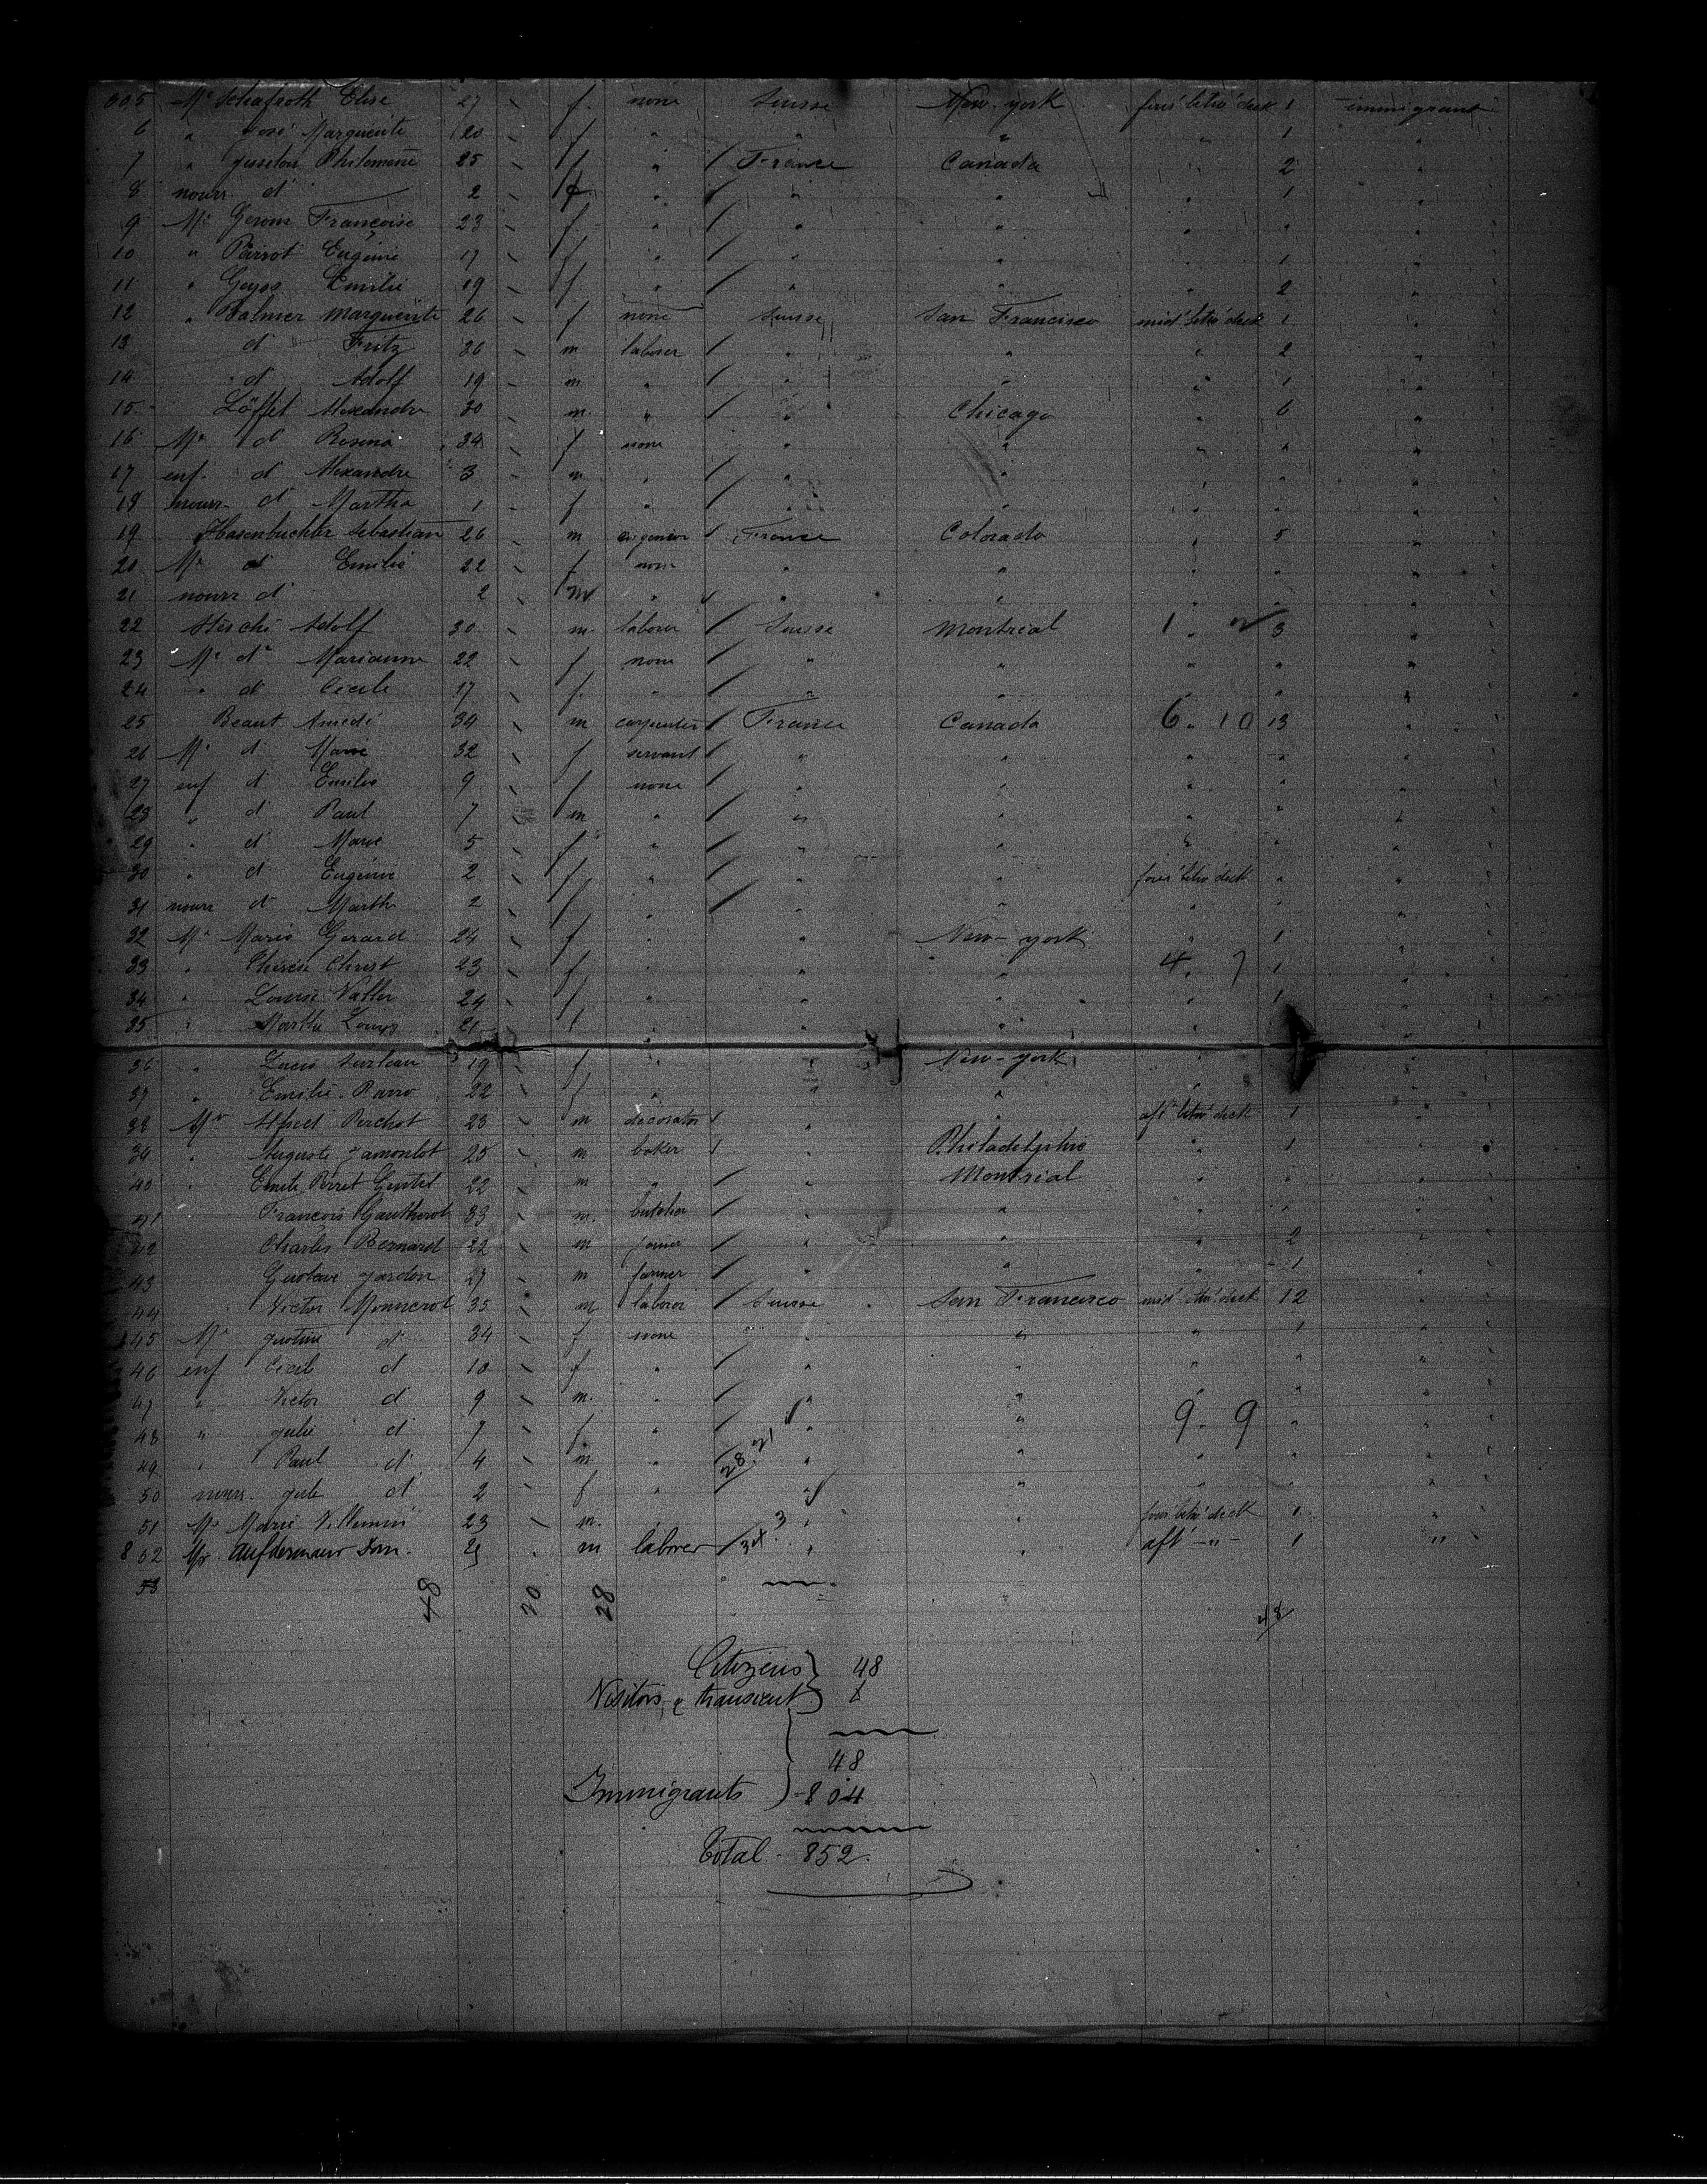 805 Me Schafroth Elise 27 f. none Suisse New-york for'd betw' deck 1 immigrant
6 " José Marguerite 20 f " " " " 1 "
7 " Philomene 25 f " France Canada " 2 "
8 nourr. d' 2 f " " " " 1 "
9 Me Gerom Françoise 23 f " " " " " "
10 " Parrot Eugénie 17 f " " " " 1 "
11 " Emilie 19 f " " " " 2 "
12 " Balmer Marguerite 26 f none Suisse San Francisco mid' betw' deck 1 "
13 d' Fritz 36 m laborer " " " 2 "
14 d' Adolf 19 m " " " " 1 "
15 Löffel Alexandre 30 m. " " Chicago " 6 "
16 Me d' Rosina 34 f none " " " " "
17 enf. d' Alexandre 3 m " " " " " "
18 nourr. d' Martha 1 f " " " " " "
19 Hasenbuchler Sebastian 26 m France Colorado " 5 "
20 Me d' Emilie 22 f none " " " " "
21 nourr d' 2 m " " " " " "
22 Adolf 30 m. laborer Suisse Montreal 1. 2 3 "
23 Me d' Marianne 22 f none " " " " "
24 " d' Cecile 17 f. " " " " " "
25 Beaut Amedé 34 m carpenter France Canada 6. 10 13 "
26 Me d' Marie 32 f servant " " " " "
27 enf d' Emilie 9 f none " " " " "
28 " d' Paul 7 m " " " " " "
29 " d' Marie 5 f " " " " " "
30 " d' Eugénie 2 f " " " for'd betw' deck " "
31 nourr d' Marthe 2 f " " " " " "
32 Me Marie Gerard 24 f " " New-york " 1 "
33 " Therese Christ 23 f " " " 4. 7 1 "
34 " Louise 24 f " " " " 1 "
35 " Marthe 21 f " " " " " "
36 " Lucie 19 f " " New-york " "
37 " Emilie 22 f " " " " "
38 Mr Alfred Perchot 23 m decorator " " aft' betw' deck 1 "
39 " Auguste Jamonlot 25 m baker " Philadelphia " 1 "
40 " Emile Perret Gentil 22 m " " Montreal " " "
41 François Gautherot 33 m. butcher " " " " "
42 Charles Bernard 22 m " " " 2 "
43 Gustave Jardon 27 m farmer " " " 1 "
44 Victor Monnerot 35 m laborer Suisse San Francisco mid' betw' deck 12 "
845 Me Justine d' 34 f none " " " 1 "
46 enf Cecile d' 10 f " " " " " "
47 " Victor d' 9 m. " " " " " "
48 " Julie d' 7 f " " " 9. 9 " "
49 " Paul d' 4 m " 28 21 " " " " "
50 nourr. Jule d' 2 f " " " " " "
51 Me Marie Villemin 23 m. " " " for'd betw' deck 1 "
852 Mr Aufdermaur Dom. 29 m laborer 34 3 " " aft' - " - 1 "
53
48 20 28 48
Citizens } 48
Visitors, & transient }
48
Immigrants } 804
Total - 852.